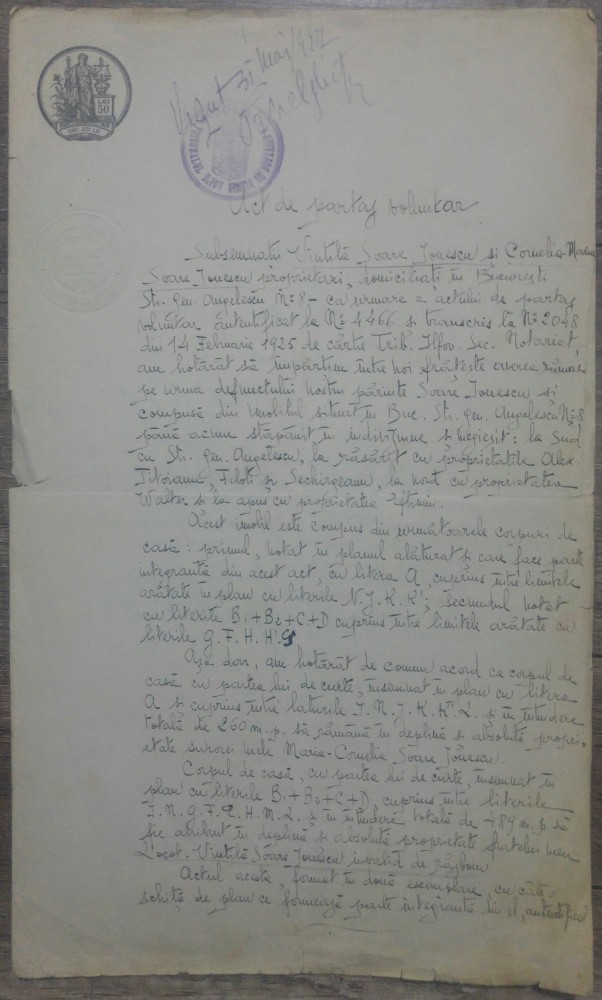 LEI
50
Vizat 31 Mai 927
Act de partaj voluntar
Subsemnatii Vintilă Soare Ionescu si Cornelia-Maria
Soare Ionescu proprietari, domiciliati în Bucuresti
Str. Gen. Angelescu No 8 – ca urmare a actului de partaj
voluntar autentificat la No 4466 si transcris la No 2048
din 14 Februarie 1925 de către Trib. Ilfov. Sec. Notariat,
am hotărât să împărtim între noi frăteste averea rămasă
pe urma defunctului nostru părinte Soare Ionescu si
compusă din imobilul situat în Buc. Str. Gen. Angelescu No 8
până acum stăpânit în indiviziune si megiesit: la Sud
cu Str. Gen. Angelescu, la răsărit cu proprietatile Alex.
Filoti si Sechireanu, la nord cu proprietatea
Walter si la apus cu proprietatea Eftimiu.
Acest imobil este compus din următoarele corpuri de
casă: primul, notat în planul alăturat si care face parte
integrantă din acest act, cu litera A, cuprins între limitele
arătate în plan cu literile N. J. K. K'; secundul notat
cu literile B1+B2+C+D cuprins între limitele arătate cu
literile G. F. H. H'. G
Asa dar, am hotărât de comun acord ca corpul de
casă cu partea lui de curte, însemnat în plan cu litera
A si cuprins între laturile I. N. J. K. K'. L. si în întindere
totală de 260 m.p. să rămână în deplină si absolută propri-
etate surorei mele Maria-Cornelia Soare Ionescu.
Corpul de casă, cu partea lui de curte, însemnat în
plan cu literile B1+B2+C+D, cuprins între literile
I. N. G. F. H. M. L. si în întindere totală de 489 m.p. să
fie atribuit în deplină si absolută proprietate fratelui meu
Locot. Vintilă Soare Ionescu invalid de răsboiu
Actul acesta, format în două exemplare, cu câte
schită de plan ce formează parte integrantă din el, autentificat